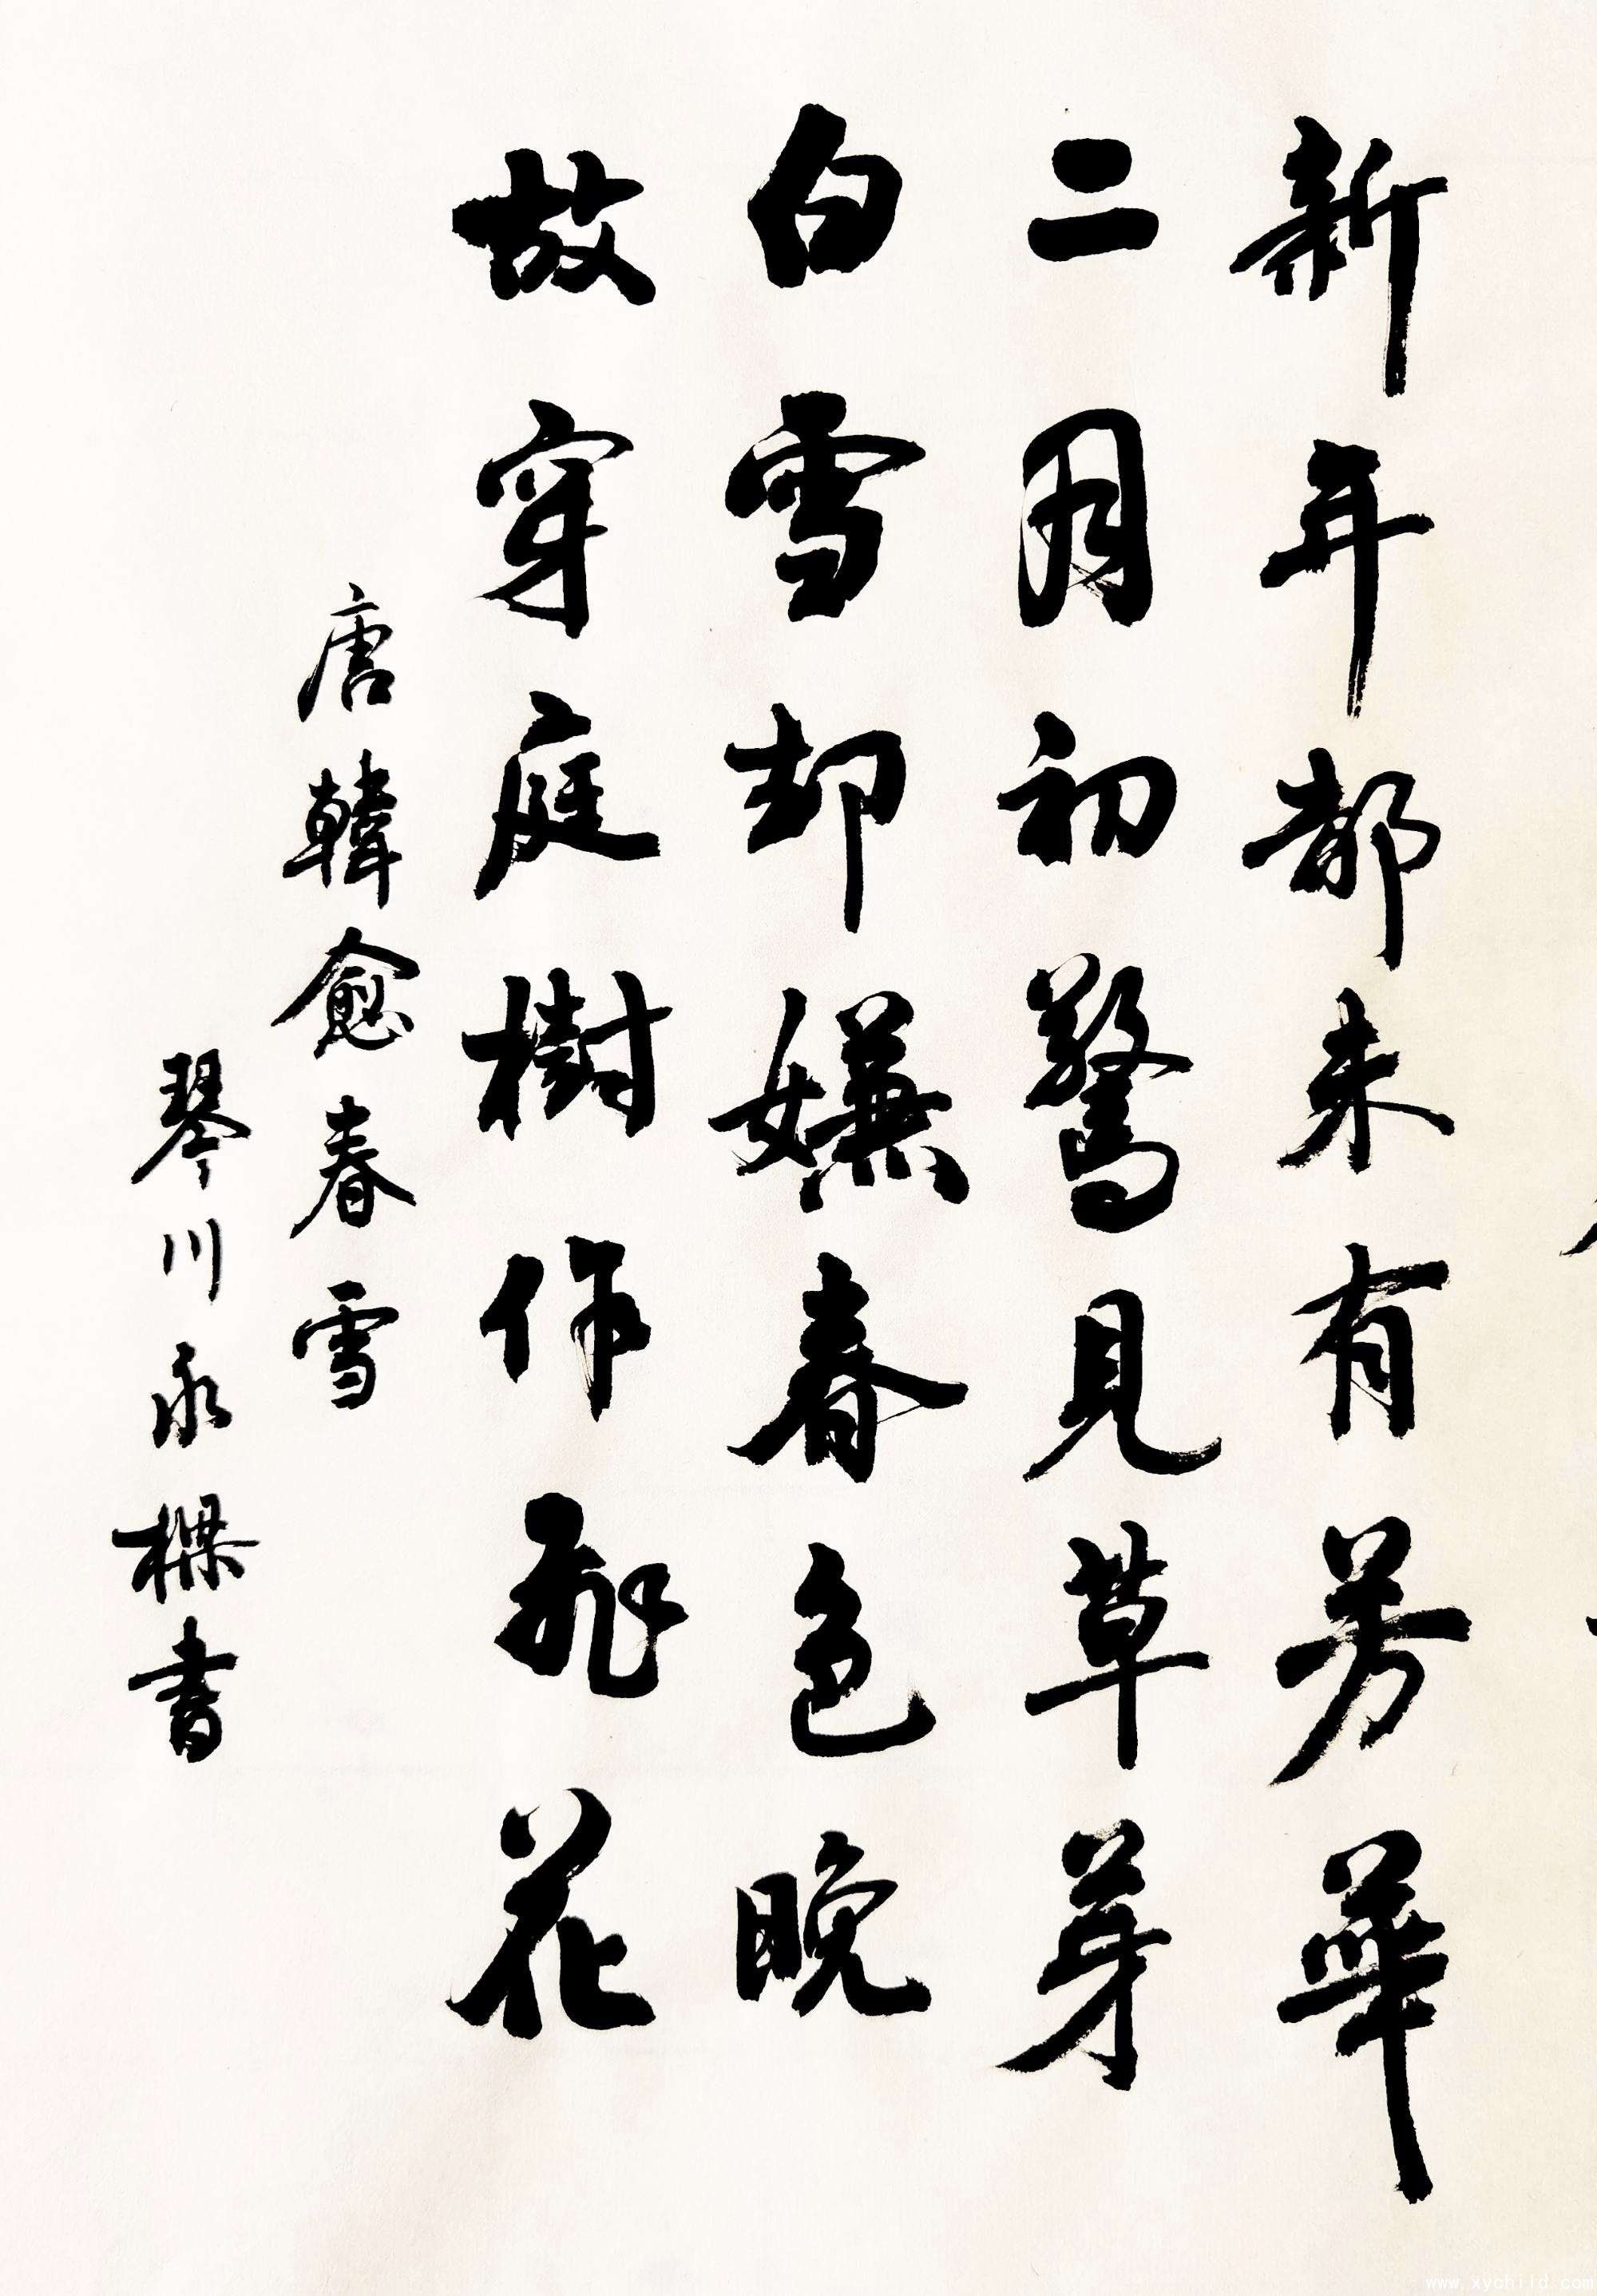 新年都未有芳華
二月初驚見草芽
白雪却嫌春色晚
故穿庭樹作飛花
唐韓愈春雪
琴川永樑書
www.xychild.com